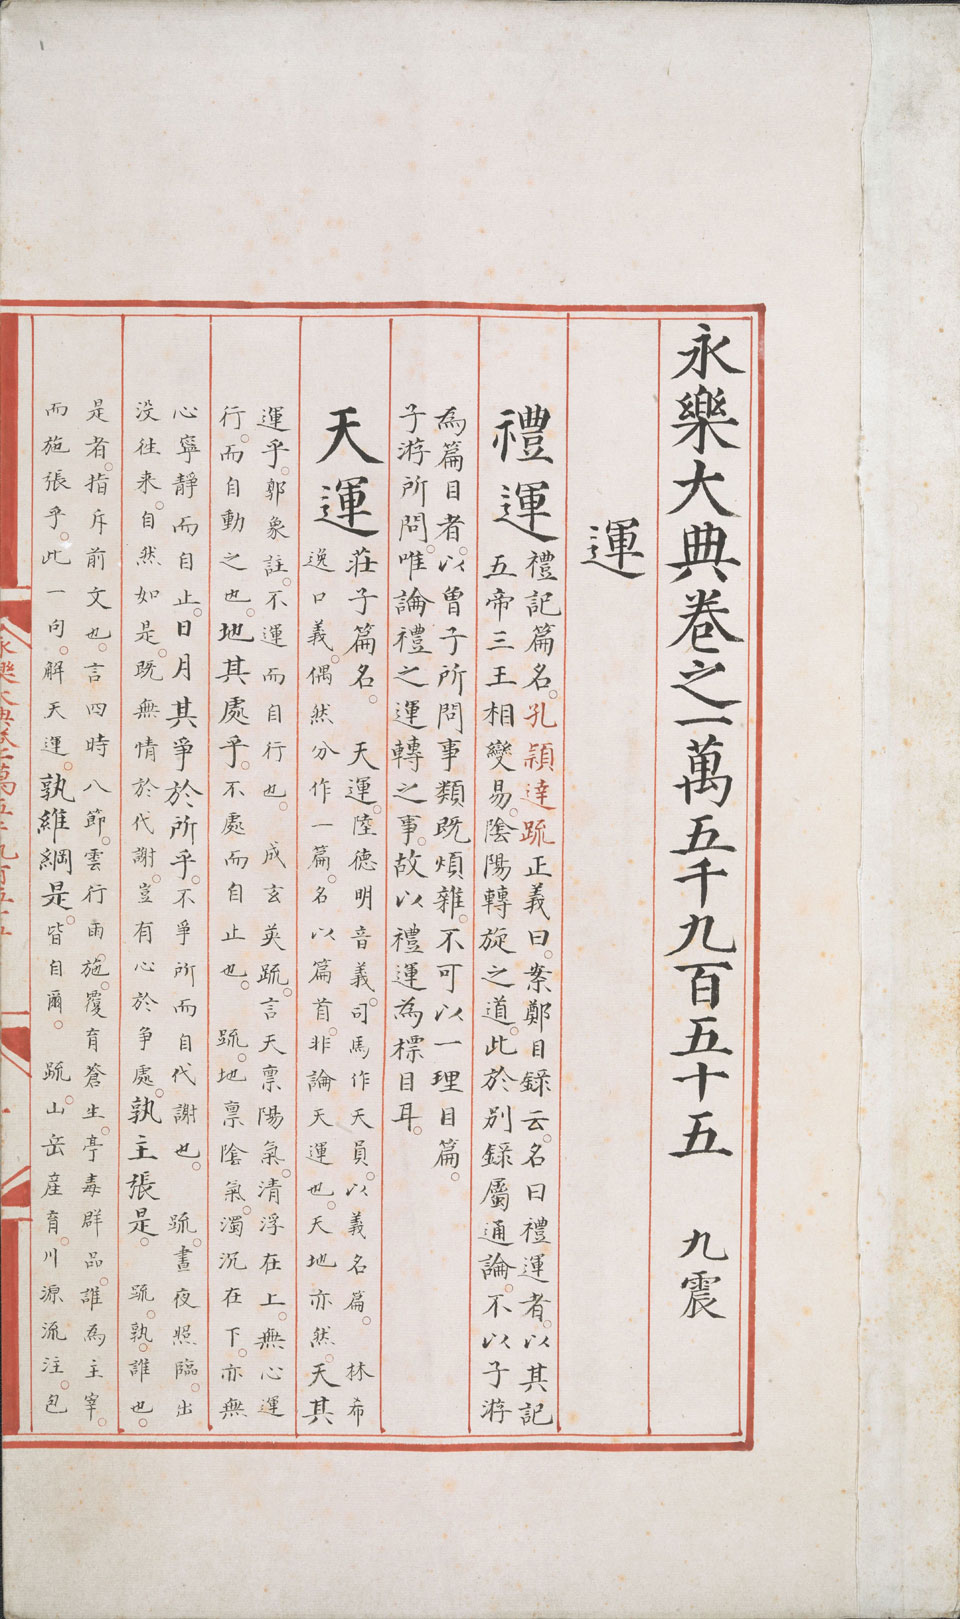 永樂大典卷之一萬五千九百五十五　九震
運
禮運
禮記篇名。孔穎達疏正義曰。案鄭目錄云。名曰禮運者。以其記
五帝三王相變易。陰陽轉旋之道。此於別錄屬通論。不以子游
為篇目者。以曾子所問事類既煩雜。不可以一理目篇。
子游所問。唯論禮之運轉之事。故以禮運為標目耳。
天運
莊子篇名。　天運。陸德明音義。司馬作天員。以義名篇。　林希
逸口義。偶然分作一篇。名以篇首。非論天運也。天地亦然。天其
運乎。郭象註。不運而自行也。　成玄英疏。言天稟陽氣。清浮在上。無心運
行。而自動之也。地其處乎。不處而自止也。　疏。地稟陰氣。濁沉在下。亦無
心寧靜而自止。日月其爭於所乎。不爭所而自代謝也。　疏。晝夜照臨。出
没往来。自然如是。既無情於代謝。豈有心於爭處。孰主張是。　疏。孰。誰也。
是者。指斥前文也。言四時八節。雲行雨施。覆育蒼生。亭毒群品。誰為主宰。
而施張乎。此一句。解天運。孰維綱是。皆自爾。　疏。山岳産育。川源流注。包
永樂大典卷一萬五千九百五十五